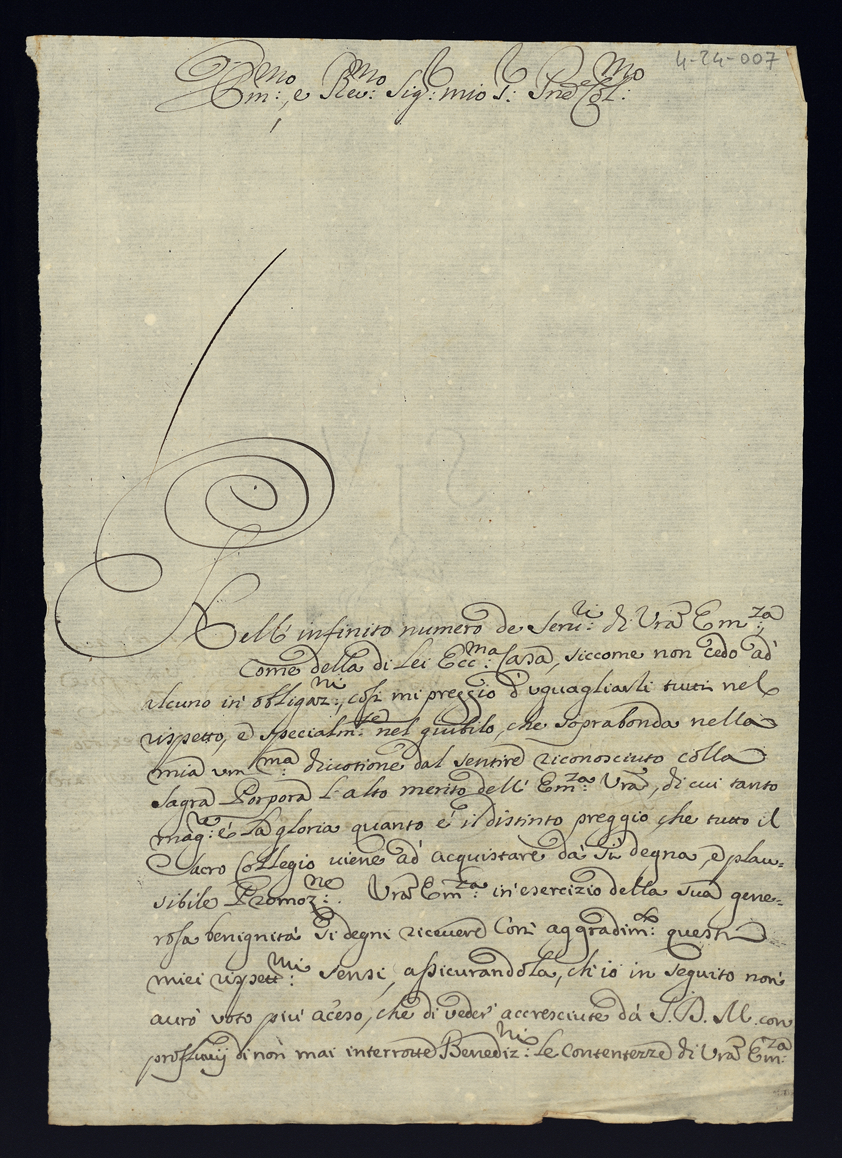 4-24-007
Em:mo, e Rev:mo Sig:r mio S:r Pne Col:mo
Nell' infinito numero de Seru:ri di Vrã Em:za,
Come della di Lei Ecc:ma Casa, siccome non cedo ad
alcuno in obligaz:ni, così mi preggio d'uguagliarli tutti nel
rispetto, e specialm:te nel giubilo, che soprabonda nella
mia um:ma diuotione dal sentire riconosciuto colla
Sagra Porpora l'alto merito dell' Em:za Vrã, di cui tanto
mag:r è la gloria quanto è il distinto preggio, che tutto il
Sacro Collegio uiene ad acquistare da sì degna, e plau-
sibile Promoz:ne. Vrã Em:za in esercizio della sua gene-
rosa benignità si degni riceuere con aggradim:to questi
miei rispett:mi sensi, assicurandola, ch'io in seguito non
aurò voto più acceso, che di veder' accresciute da S. D. M. con
profluuij di non mai interrotte Benediz:ni le contentezze di Vrã Em:za